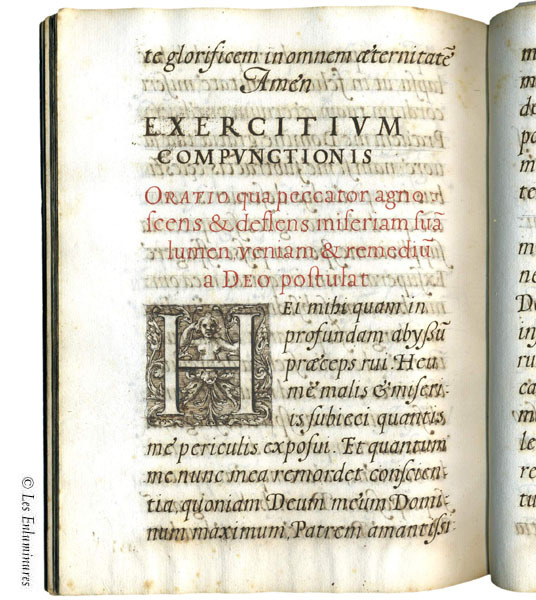 te glorificem in omnem æternitatē
Amen
EXERCITIVM
COMPVNCTIONIS
ORATIO qua peccator agno
scens & deflens miseriam suā
lumen, veniam, & remediū
a DEO postulat
HEi mihi quam in
profundam abyssū
præceps rui Heu
me malis & miseri-
is subieci quantis
me periculis exposui. Et quantum
me nunc mea remordet conscien-
tia, quoniam Deum meum Domi-
num maximum Patrem amantissi-
m
m
de
po
m
te
ne
D
in
ru
ca
m
le
re
tu
© Les Enluminures